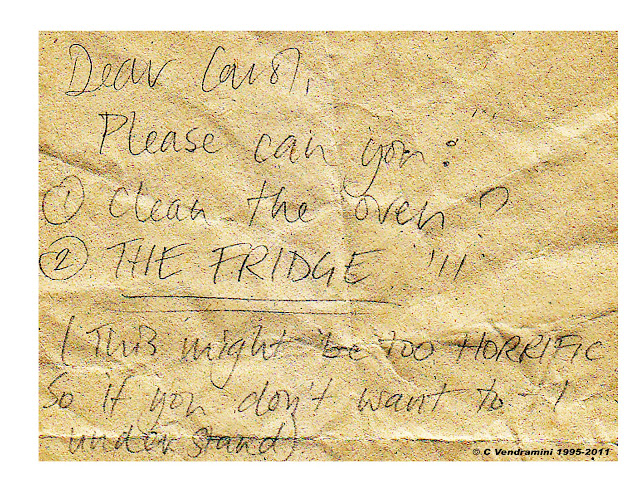 Dear Carol,
Please can you:
① Clean the oven ?
② THE FRIDGE !!!
(This might be too HORRIFIC
So if you don't want to - I
understand)
© C Vendramini 1995-2011